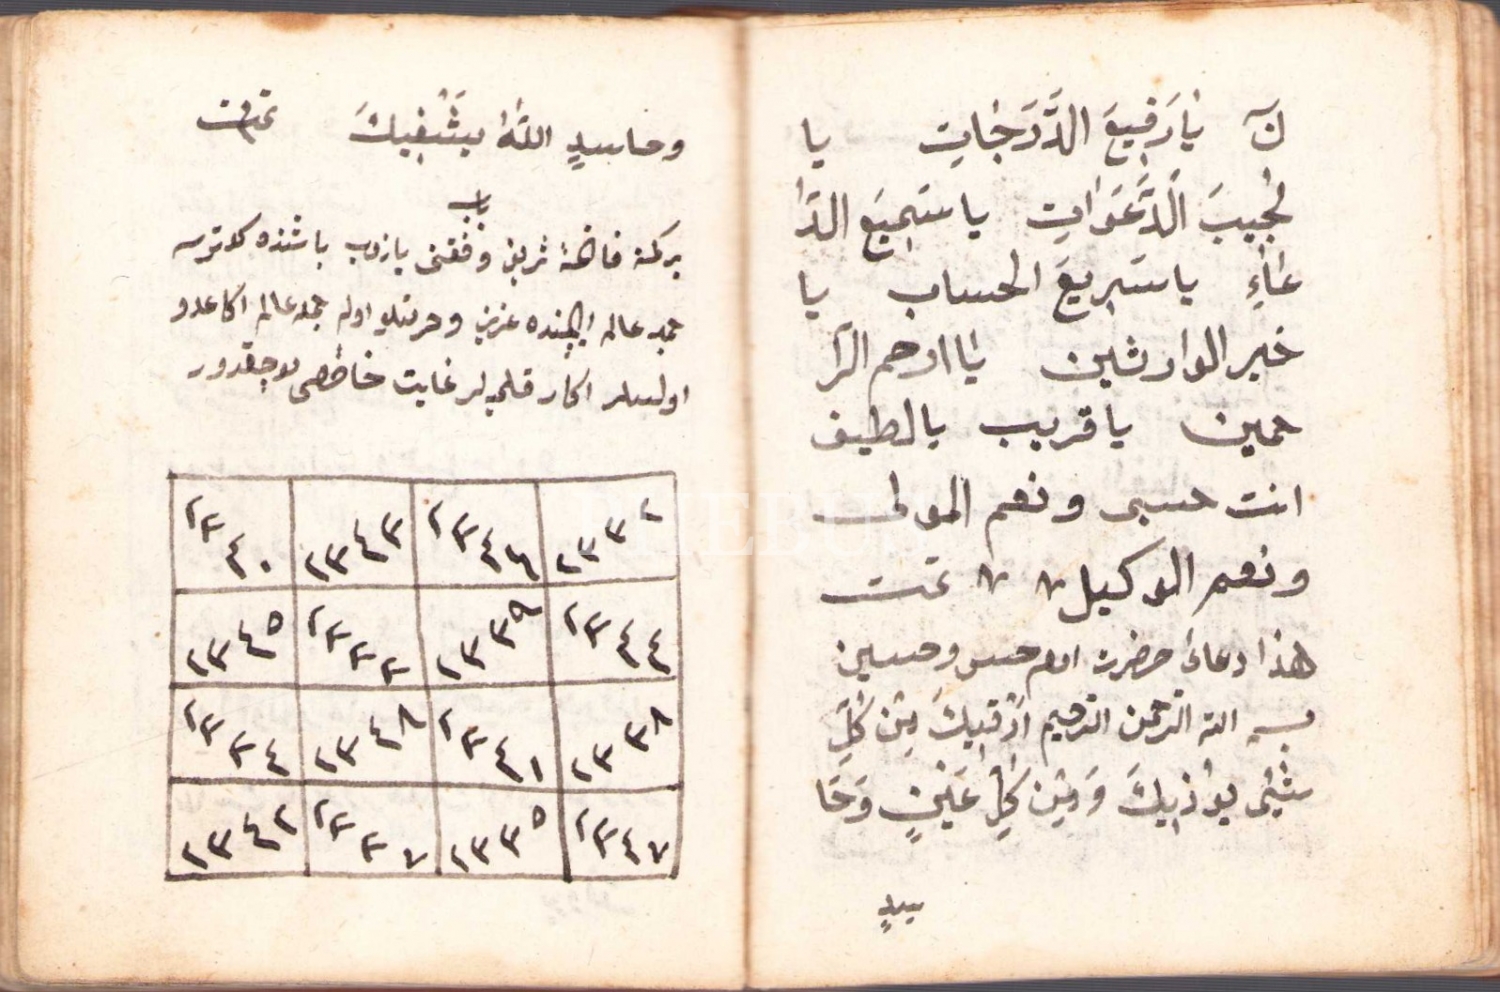 نَ يَا رَفِيعَ الدَّرَجَاتِ يا
مُجِيبَ الدَّعَوَاتِ يا سَمِيعَ الدُّ
عَاءِ يا سَرِيعَ الحساب يا
خير الوارثين يا ارحم الرّا
حمين يا قريب يا لطيف
انت حسبى و نعم المولى
و نعم الوكيل تمت
هذا دعاى حضرت امام حسن و حسين
بسم الله الرحمن الرحيم اَرْقِيكَ مِنْ كُلِّ
شَيْئٍ يُؤْذِيكَ وَ مِنْ كُلِّ عَيْنٍ وَ حَا
سِدٍ
و حاسِدٍ اللهُ يَشْفِيكَ تمت
باب
بر كمنه فاتحهٔ شريف وفقنى يازوب باشنده كوتورسه
جمله عالم ايچنده عزيز و حرمتلو اوله جمله عالم اكا عدو
اولسه لر اكا قلميه لر غايت خاصه
١٣٣٢ ١٣٤٦ ١٣٤٣ ١٣٤٠
١٣٤٤ ١٣٣٩ ١٣٣٣ ١٣٤٥
١٣٣٨ ١٣٤١ ١٣٤٨ ١٣٣٤
١٣٤٧ ١٣٣٥ ١٣٣٧ ١٣٤٢